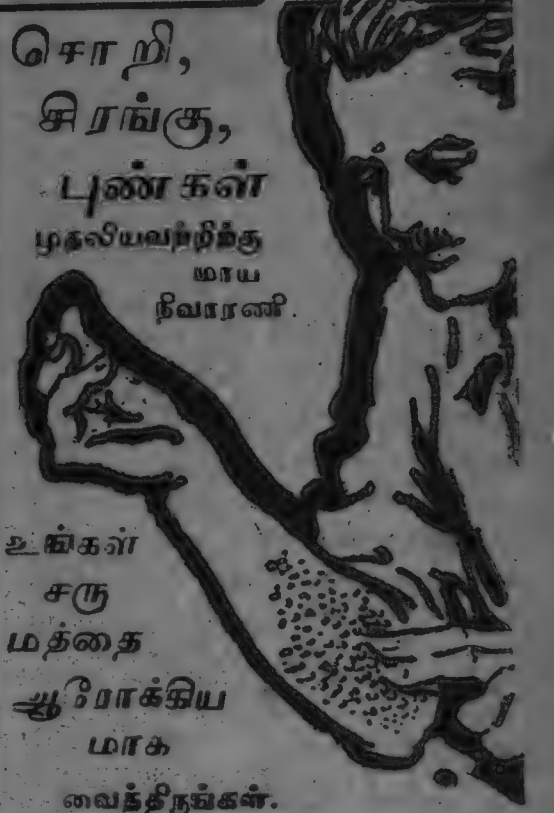 சொறி,
சிரங்கு,
புண்கள்
முதலியவற்றிற்கு
மாய
நிவாரணி.
உங்கள்
சரு
மத்தை
ஆரோக்கிய
மாக
வைத்திருங்கள்.